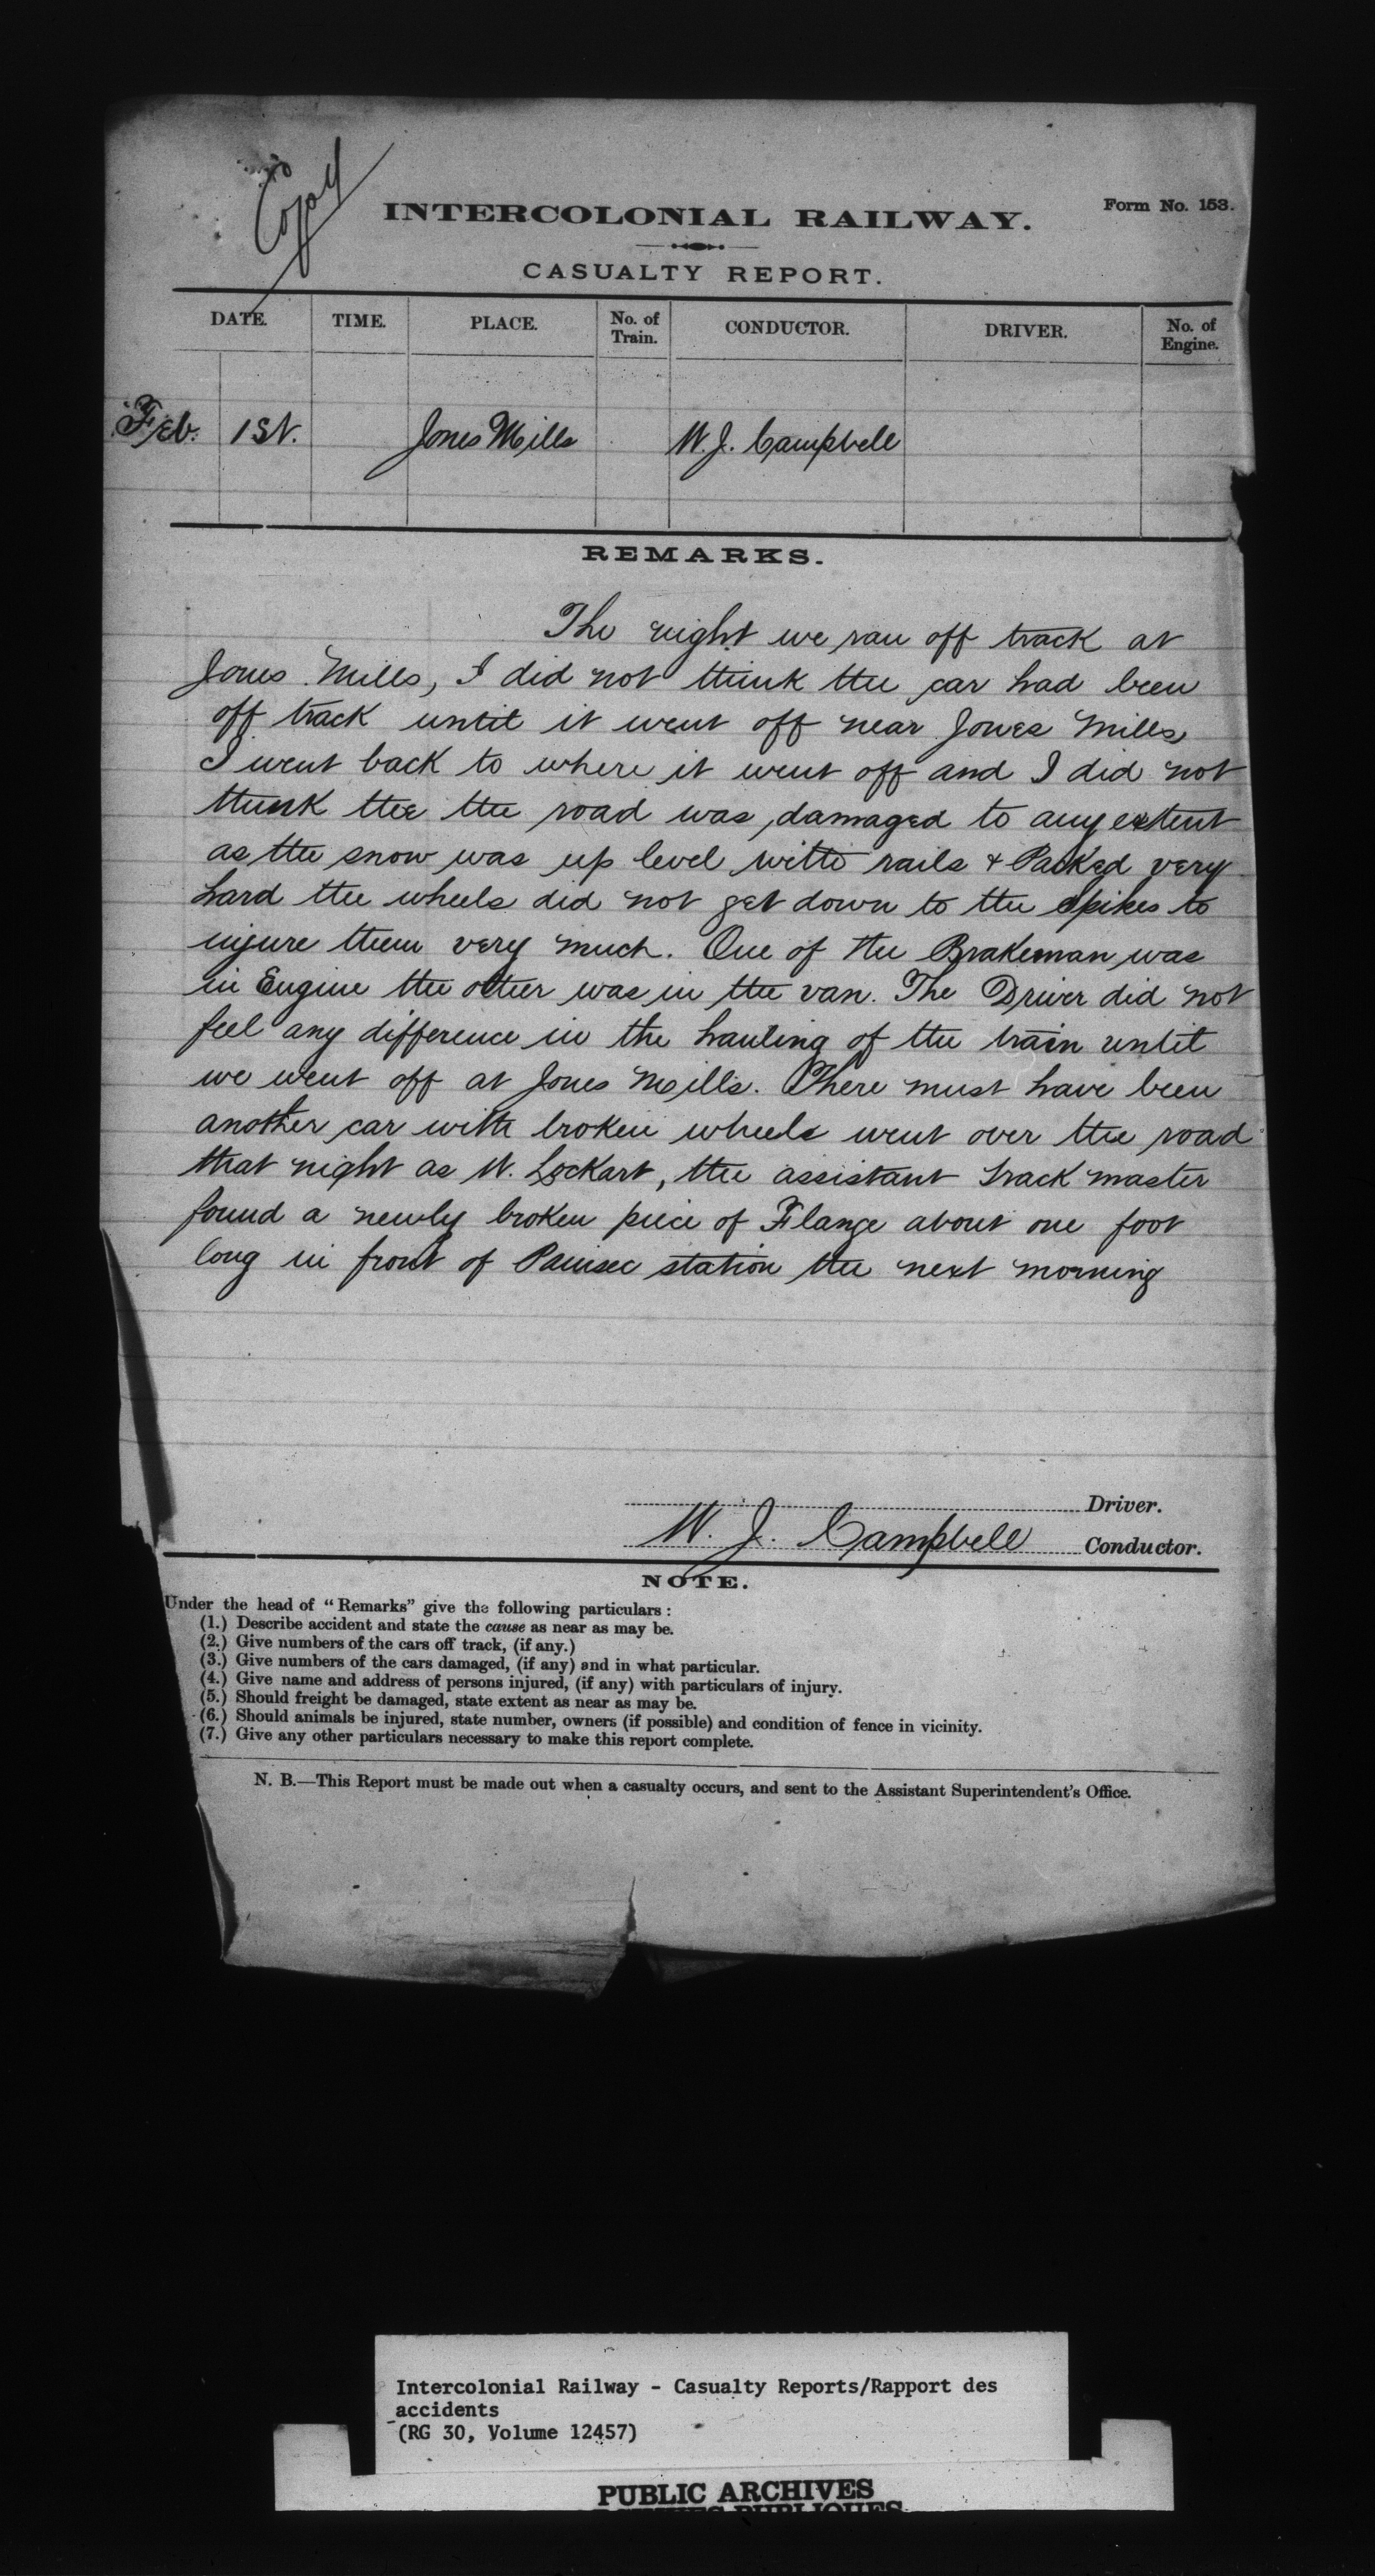 Copy
INTERCOLONIAL RAILWAY.
Form No. 153.
CASUALTY REPORT.
DATE. TIME. PLACE. No. of Train. CONDUCTOR. DRIVER. No. of Engine.
Feb. 1st. Jones Mills W. J. Campbell
REMARKS.
The night we ran off track at
Jones Mills, I did not think the car had been
off track until it went off near Jones Mills
I went back to where it went off and I did not
think the the road was damaged to any extent
as the snow was up level with rails & Packed very
hard the wheels did not get down to the spikes to
injure them very much. One of the Brakeman was
in Engine the other was in the van. The Driver did not
feel any difference in the hauling of the train until
we went off at Jones Mills. There must have been
another car with broken wheels went over the road
that night as W. Lockart, the assistant track master
found a newly broken piece of Flange about one foot
long in front of Painsec station the next morning
Driver.
W. J. Campbell Conductor.
NOTE.
Under the head of "Remarks" give the following particulars :
(1.) Describe accident and state the cause as near as may be.
(2.) Give numbers of the cars off track, (if any.)
(3.) Give numbers of the cars damaged, (if any) and in what particular.
(4.) Give name and address of persons injured, (if any) with particulars of injury.
(5.) Should freight be damaged, state extent as near as may be.
(6.) Should animals be injured, state number, owners (if possible) and condition of fence in vicinity.
(7.) Give any other particulars necessary to make this report complete.
N. B.—This Report must be made out when a casualty occurs, and sent to the Assistant Superintendent's Office.
Intercolonial Railway - Casualty Reports/Rapport des
accidents
(RG 30, Volume 12457)
PUBLIC ARCHIVES
PUBLIQUES